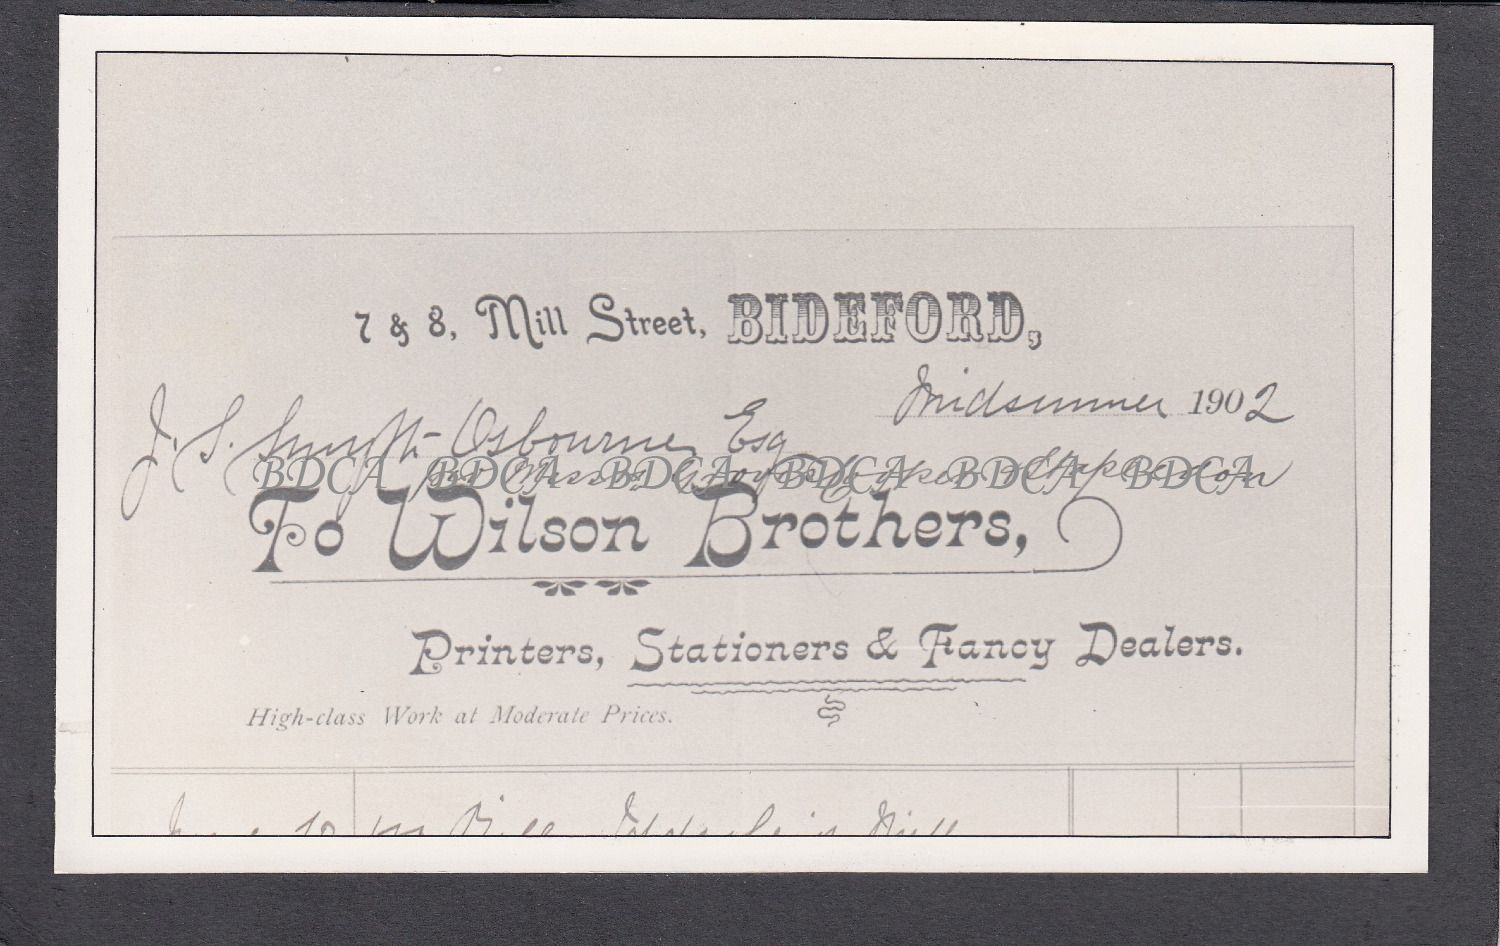 7 & 8, Mill Street, BIDEFORD,
Midsummer 1902
J. S. Smyth-Osbourne Esq
BDCA BDCA BDCA BDCA BDCA BDCA
per Messrs
To Wilson Brothers,
Printers, Stationers & Fancy Dealers.
High-class Work at Moderate Prices.
June 10